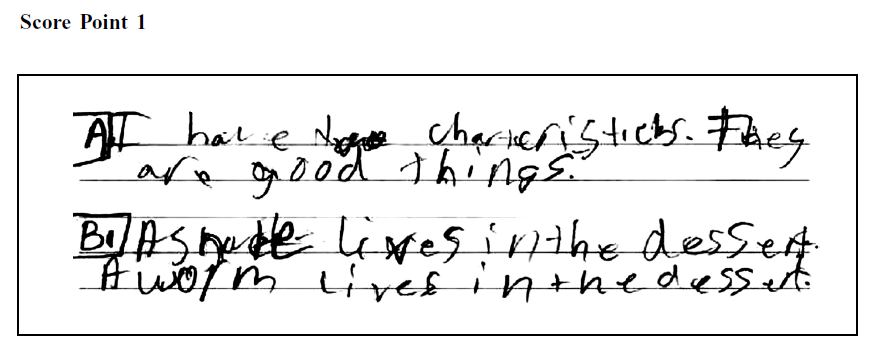 Score Point 1
A) I have charicteristicts. They
are good things.
B.) A snake lives in the dessert.
A worm lives in the dessert.